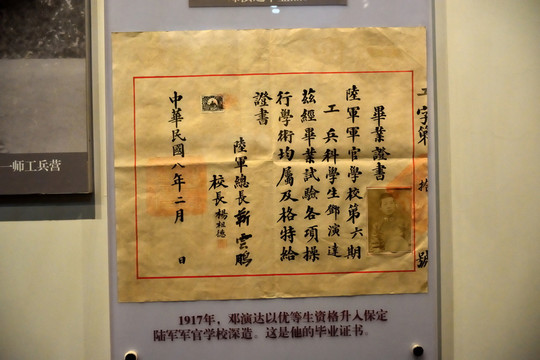 工字第 拾 號
畢業證書
陸軍軍官學校第六期
工兵科學生鄧演達
茲經畢業試驗各項操
行學術均屬及格特給
證書
陸軍總長靳雲鵬
校長楊祖德
中華民國八年二月 日
一师工兵营
1917年，邓演达以优等生资格升入保定
陆军军官学校深造。这是他的毕业证书。